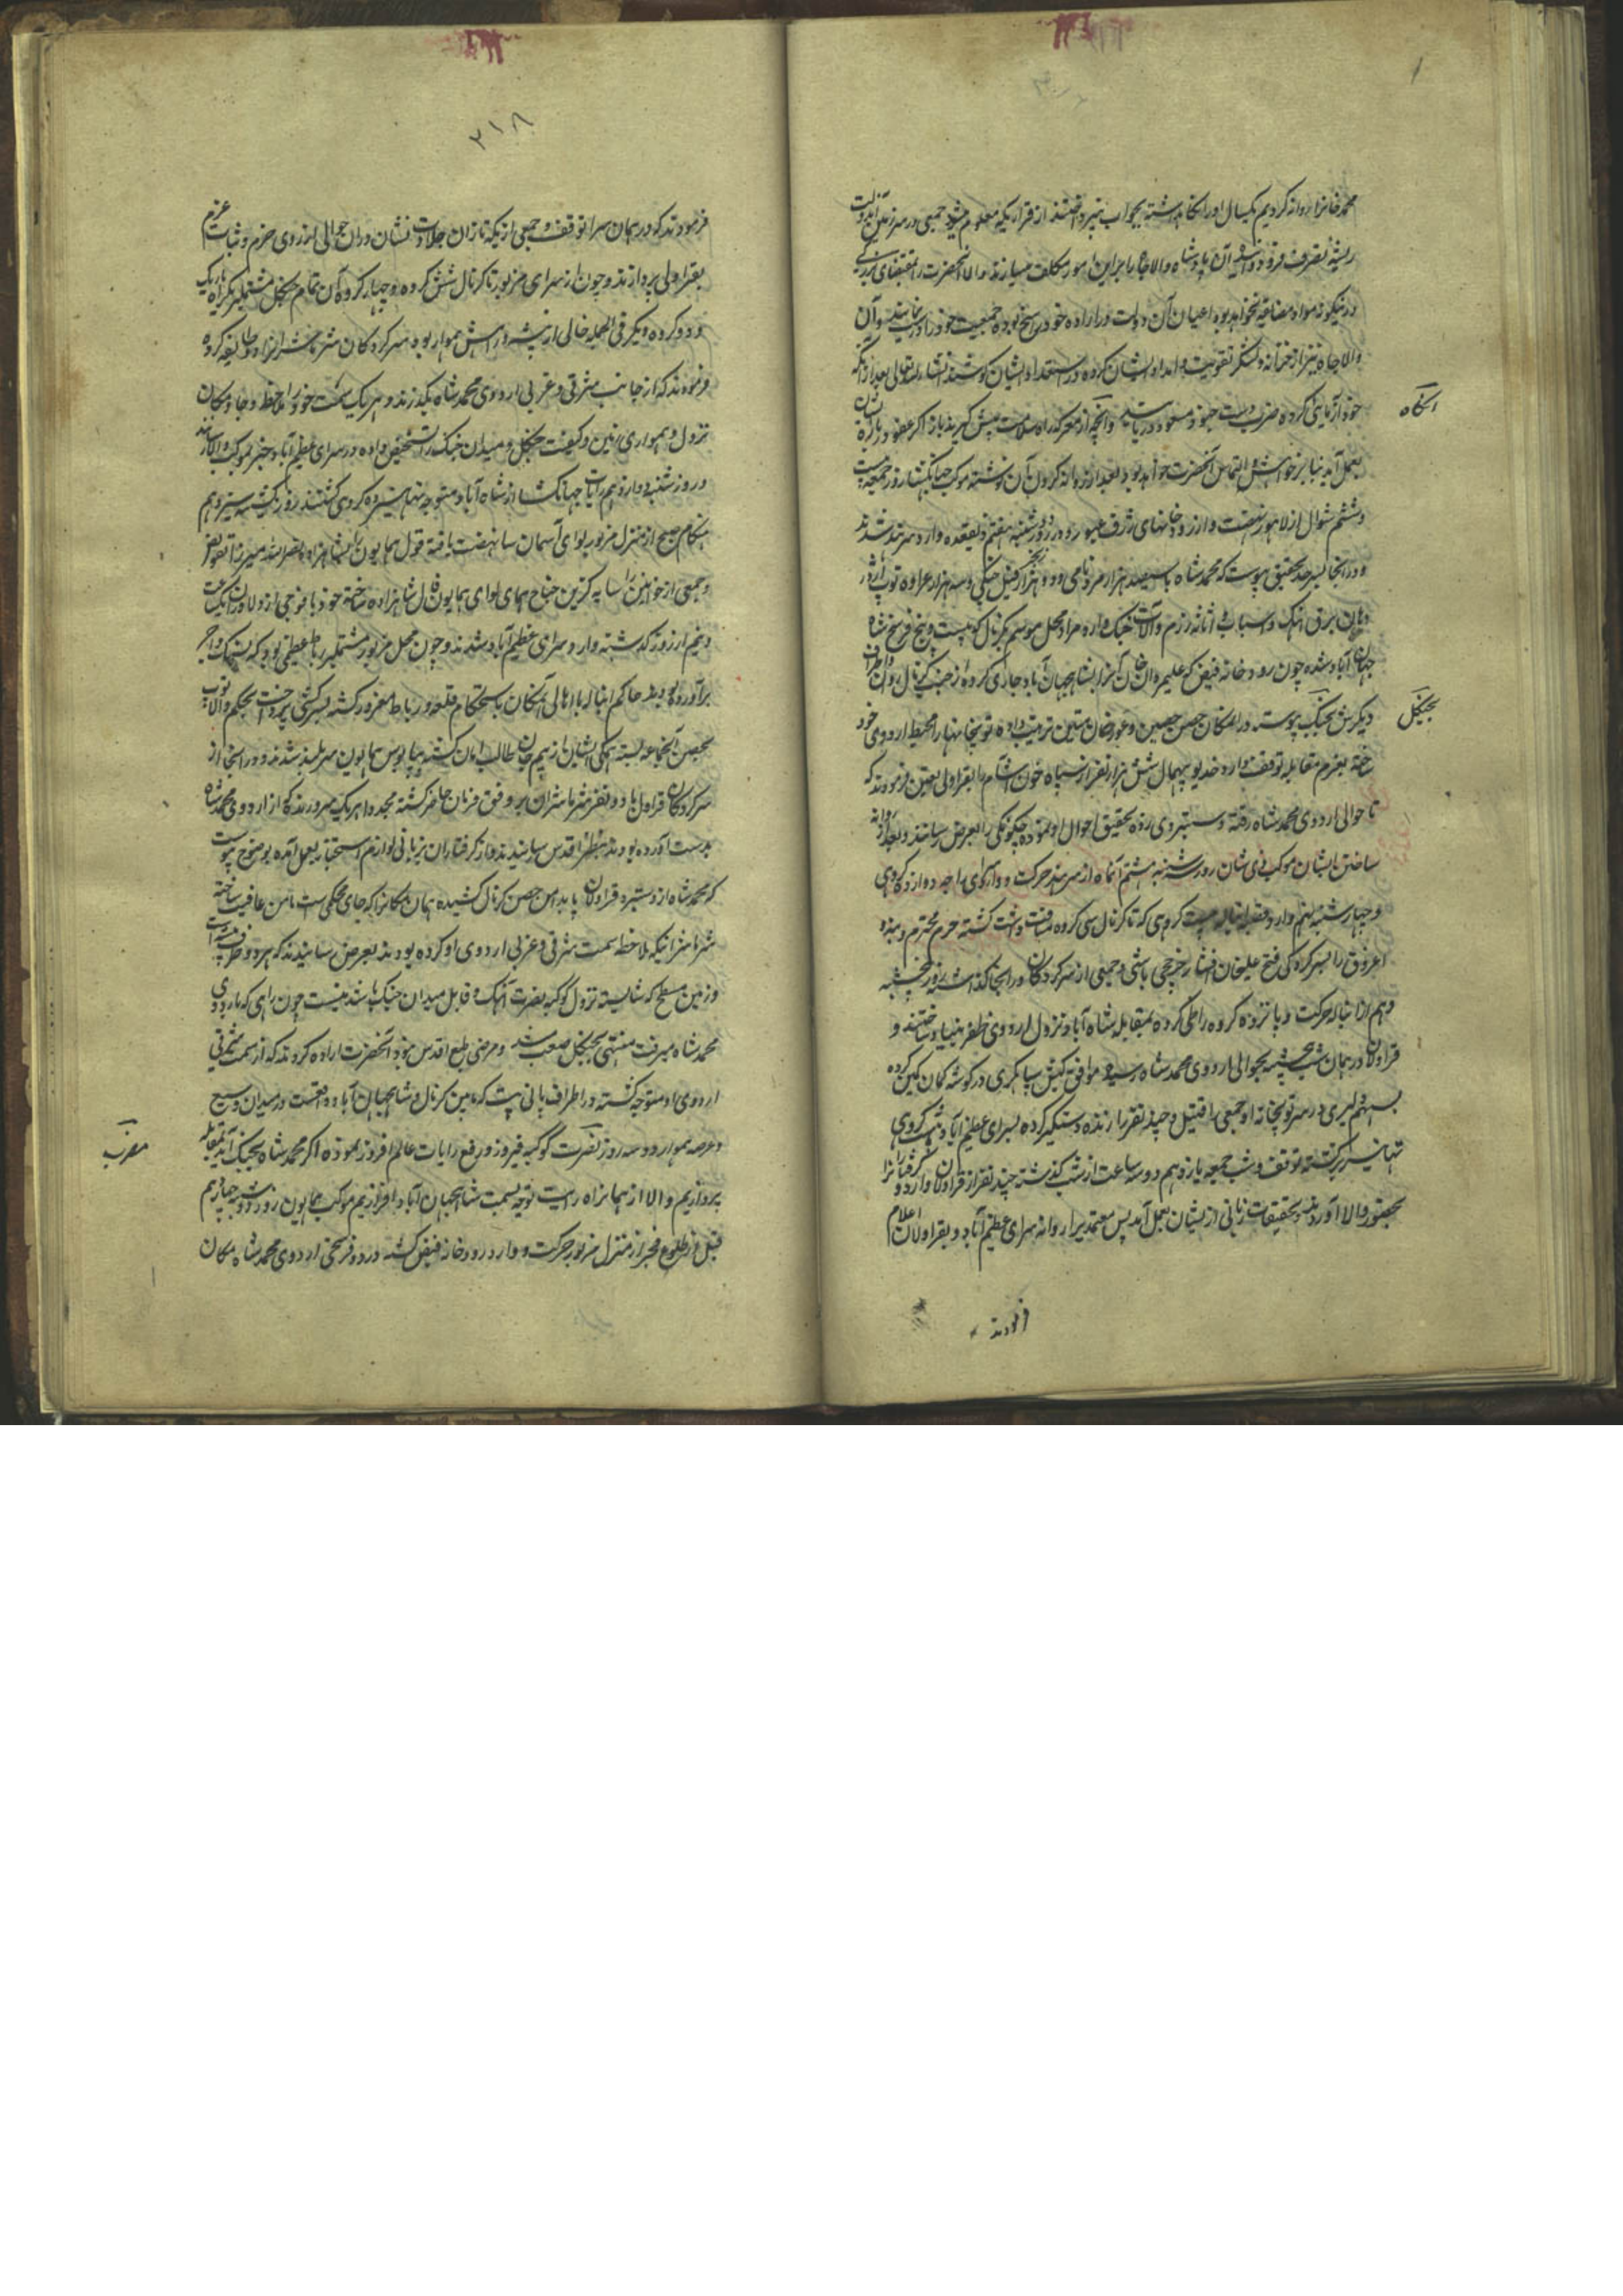 محمد خانرا روانه کردیم یکسال او را نگاهداشته بجواب نپرداختند از قراریکه معلوم میشود جمعی در سرزمین آندولت
ریشه تصرف فرو آن پادشاه والاجاه را براین امور مکلف میسازند والا آنحضرت را بمقتضای بزرگی
در نیکونه مواد مضایقه نخواهد بود اعیان آن دولت در اراده خود راسخ بوده جمعیت خود را درست نمایند و آن
والاجاه نیز از خزانه و لشکر تقویت و امداد ایشان کرده در استعداد ایشان کوشند انشاءالله تعالی بعد از آنکه
خود آزمایی کرده ضرب دست جنود مسعود دریابند و آنچه از معرکه راه سلامت پیش گیرند باز اگر عفو در باره ایشان
بعمل آید بنابر خواهش و التماس آنحضرت خواهد بود بعد از روانه کردن آن نوشته موکب جهانگشا روز جمعه بیست
و ششم شوال از لاهور نهضت و از رودخانهای ژرف عبور و در روز دوشنبه هفتم ذیقعده وارد سرهند شدند
و در آنجا بسرحد تحقیق پیوست که محمد شاه با سیصد هزار مرد نامی و دو هزار زنجیر فیل جنگی و سه هزار عراده توپ اژدر
دهان برق آهنگ و اسباب و اثاثه رزم و آلات جنگ وارد محل موسوم بکرنال که بیست و پنج فرسخ شاه
جهان آباد شده چون رودخانه فیض که علیمردان خان آنرا بشاهجهان آباد جاری کرده از جنب کرنال روان و اطراف
دیگرش بجنگل پیوسته در آن مکان حصن حصین و عورخان متین ترتیب داده توپخانها را محیط اردوی خود
ساخته بعزم مقابله توقف دارد خدیو بیهمال شش هزار نفر از سپاه خون آشام را بقراولی تعیین فرمودند که
تا حوالی اردوی محمد شاه رفته و دستبردی زده تحقیق احوال او نموده چگونگی را بعرض رسانند و بعد از روانه
ساختن ایشان موکب ذی شان روز سه شنبه هشتم آنماه از سرهند حرکت و وارد سرای راجه دوازده کروهی
و چهارشنبه نهم وارد قصبه انباله بیست کروهی که تا کرنال سی کروه مسافت داشت گشته حرم محترم و بنه و
اغروق را بسرکردگی فتح علیخان افشار چرخچی باشی و جمعی از سرکردگان در آنجا گذاشته روز پنجشنبه
دهم از انباله حرکت و پانزده کروه راه طی کرده بمقابله شاه آباد نزول اردوی ظفر بنیاد ساختند و
قراولان در همان شب پنجشنبه بحوالی اردوی محمد شاه رسیده موافق کیش سپاهگری در گوشه کمان کمین کرده
بسهم دلیری در سر توپخانه او جمعی را قتیل و چند نفر را زنده دستگیر کرده بسرای عظیم آباد کروهی
تهانیسر برگشته توقف و شب جمعه یازدهم دو ساعت از شب گذشته چند نفر از قراولان وارد و گرفتارانرا
بحضور والا آوردند و تحقیقات زبانی از ایشان بعمل آمد پس معتمدی را روانه سرای عظیم آباد و بقراولان اعلام
فرمودند
نگاه
بجنگل
۲۱۸
فرمودند که در همان سرا توقف و جمعی از یکه تازان جلادت نشان در آن حوالی از روی حزم و ثبات عزم
بقراولی پردازند و چون از سرای مزبور تا کرنال شش کروه و چهار کروه آن تمام جنگل مشتمل بر یکراه باریک
و دو کروه دیگر فی الجمله خالی از بیشه و راهش هموار بود سرکردگان را دو طایفه کرده
فرمودند که از جانب شرقی و غربی اردوی محمد شاه بگذرند و هر یک سمت خود را ملاحظه و جا و مکان
نزول و همواری زمین و کیفیت جنگل و میدان جنگ را تشخیص داده در سرای عظیم آباد خبر بموکب والا رسانند
و روز شنبه دوازدهم رایات جهانگشا از شاه آباد متوجه تهانیسر ده کروهی گشتند روز یکشنبه سیزدهم
هنگام صبح از منزل مزبور لوای آسمان سا نهضت یافته قول همایون را بشاهزاده نصرالله میرزا تفویض
و جمعی از خوانین را سایه گزین جناح همای لوای همایون فال شاهزاده ساخته خود با فوجی از دلاوران یکساعت
و نیم از روز گذشته وارد سرای عظیم آباد شدند و چون محل مزبور مشتمل بر رباط عظیمی بود که بسنگ و آجر
برآورده بودند حاکم انباله با اهالی آنمکان باستحکام قلعه و رباط مغرور گشته بسرکشی پرداخت بحکم والا توپ
بحصن آنجماعه بسته همگی ایشان از بیم جان طالب امان گشته بپابوس همایون سربلند شدند و در آنجا از
سرکردگان قراول با دو نفر بر وفق فرمان حاضر گشته مجددا هر یک مرور بدو کس از اردوی محمد شاه
بدست آورده بودند بنظر اقدس رسانیدند و از گرفتاران بزبانی لوازم استخبار بعمل آمده بوضوح پیوست
که محمد شاه از دستبرد قراولان پا بدامن حصن کرنال کشیده همان مکانرا که جای محکمی است مامن عافیت ساخته
که ملاحظه سمت شرقی و غربی اردوی او کرده بودند بعرض رسانیدند که هر دو طرف بیشه است
و زمین مسطح که شایسته نزول کوکبه نصرت آهنگ و قابل میدان جنگ باشد نیست چون راهی که باردوی
محمد شاه میرفت منتهی بجنگل صعب شد و مرضی طبع اقدس نبود آنحضرت اراده کردند که از سمت شرقی
اردوی او متوجه گشته در اطراف پانی پت که مابین کرنال و شاهجهان آباد واقعست در میدان وسیع
و عرصه هموار دو سه روز نصرت کوکبه فیروز و رفع رایات عالم افروز نموده اگر محمد شاه بجنگ آید بمقابله
پردازیم و الا از همان راه رایت توجه بسمت شاهجهان آباد افرازیم موکب همایون روز دوشنبه چهاردهم
قبل از طلوع فجر از منزل مزبور حرکت و وارد رودخانه فیض گشته در دو فرسخی اردوی محمد شاه مکان
مضرب